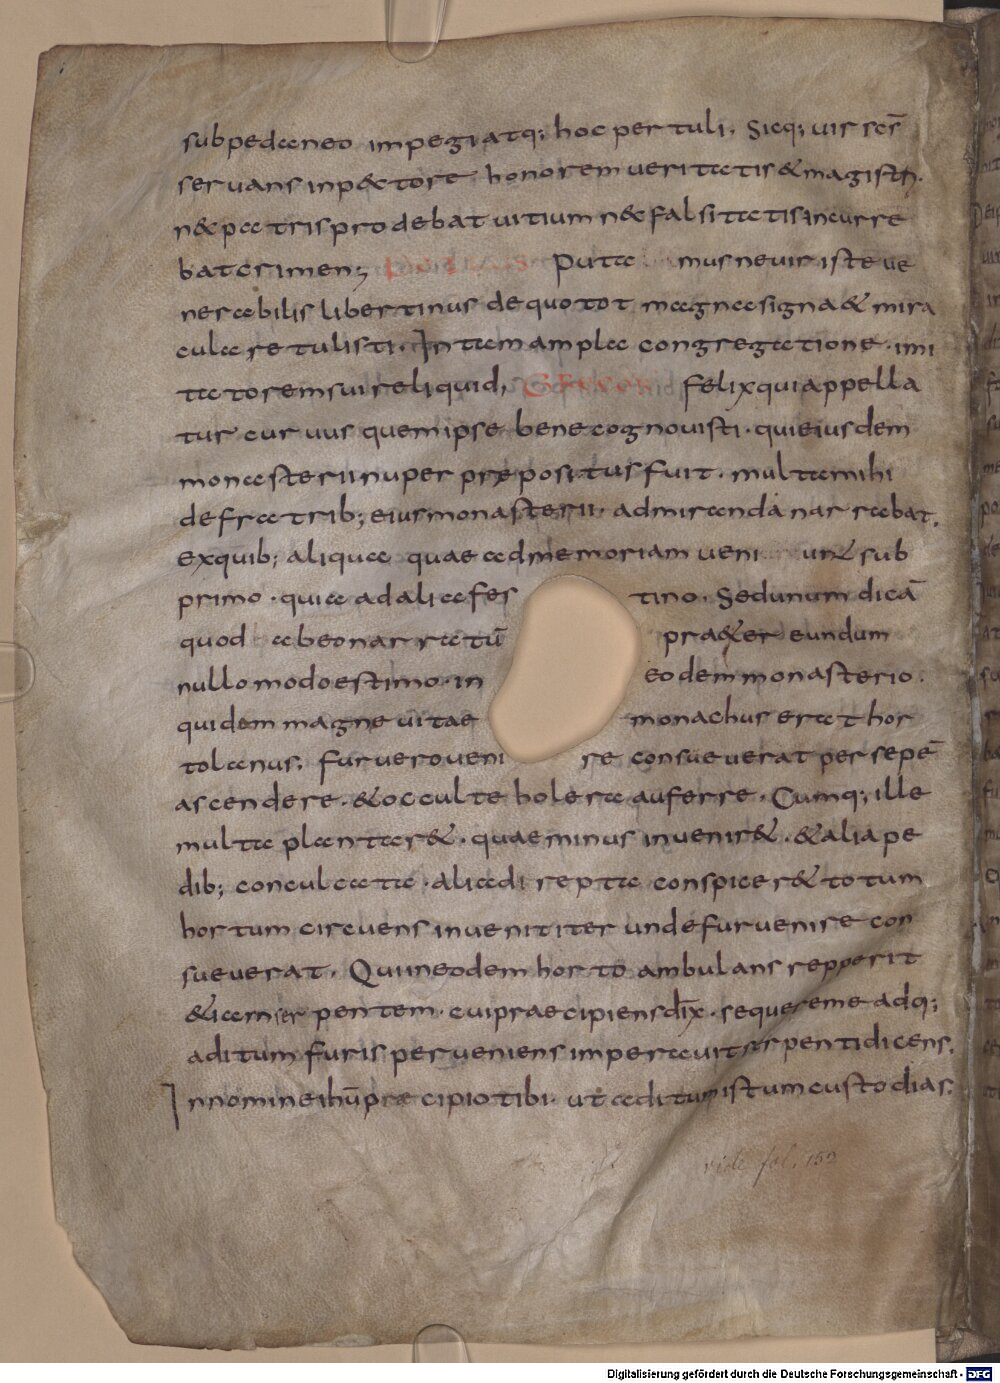 subpedaneo impegi atq; hoc pertuli. Sicq; uir scs̄
seruans inpectore honorem ueritatis & magistri.
n& patris prodebat uitium n& falsitatis incurre
bat crimen; PETRUS Puta mus ne uir iste ue
nerabilis libertinus de quo tot magna signa & mira
cula retulisti. In tam ampla congregatione. imi
tatorem sui reliquid, GREGOR felix qui appella
tur curuus quem ipse bene cognouisti. qui eiusdem
monasterii nuper prępositus fuit. multa mihi
de fratrib; eiur monasterii. admiranda narrabat.
ex quib; aliqua quae ad memoriam ueni un& sub
primo. quia ad alia fes tino. Sed unum dicā
quod ab eo narratū pra&er eundum
nullo modo estimo. in eodem monasterio.
quidem magne uitae monachus erat hor
tolanus; fur uero ueni re consueuerat per sepē
ascendere. & occulte holera auferre. Cumq; ille
multa plantar&. quae minus inuenir&. & alia pe
dib; conculcata. alia direpta conspicer& totum
hortum circuens inuenit iter unde fur uenire con
sueuerat. Qui in eodem horto ambulans repperit
& iam serpentem. cui praecipiens dix̄. sequere me adq;
aditum furis perueniens imperauit serpenti dicens.
In nomine ihū praecipio tibi. ut aditum istum custodias.
vide fol. 152
Digitalisierung gefördert durch die Deutsche Forschungsgemeinschaft - DFG